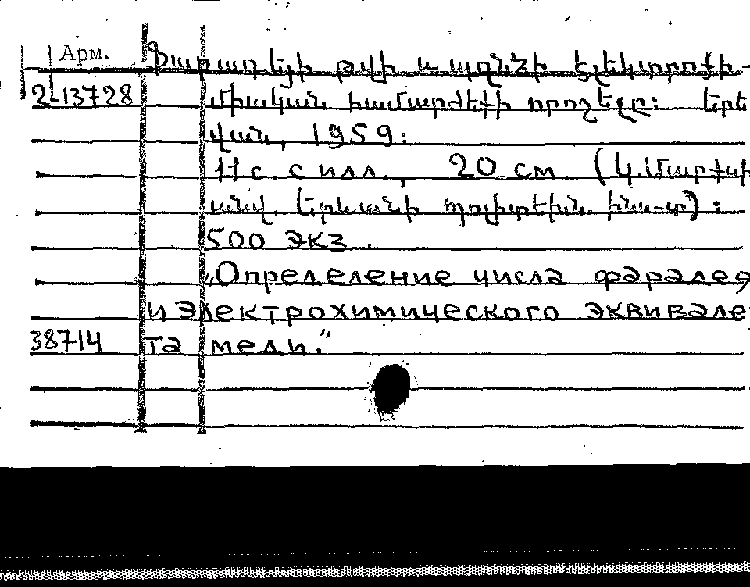 Арм. Ֆարադեյի թվի և պղնձի էլեկտրոքի-
2-13728 միական համարժեքի որոշելը: Երե
վան, 1959:
11 с. с илл., 20 см (Կ. Մարքսի
անվ. Երևանի պոլիտեխն. ինս-տ) :
500 экз.
„Определение числа фарадея
и электрохимического эквивале
38714 та меди."